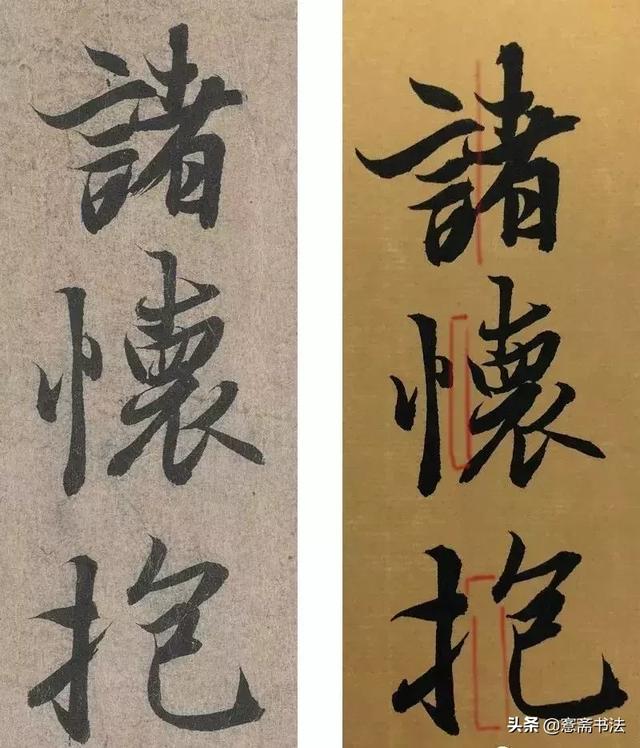 諸
懷
抱
諸
懷
抱
头条 @蹇斋书法